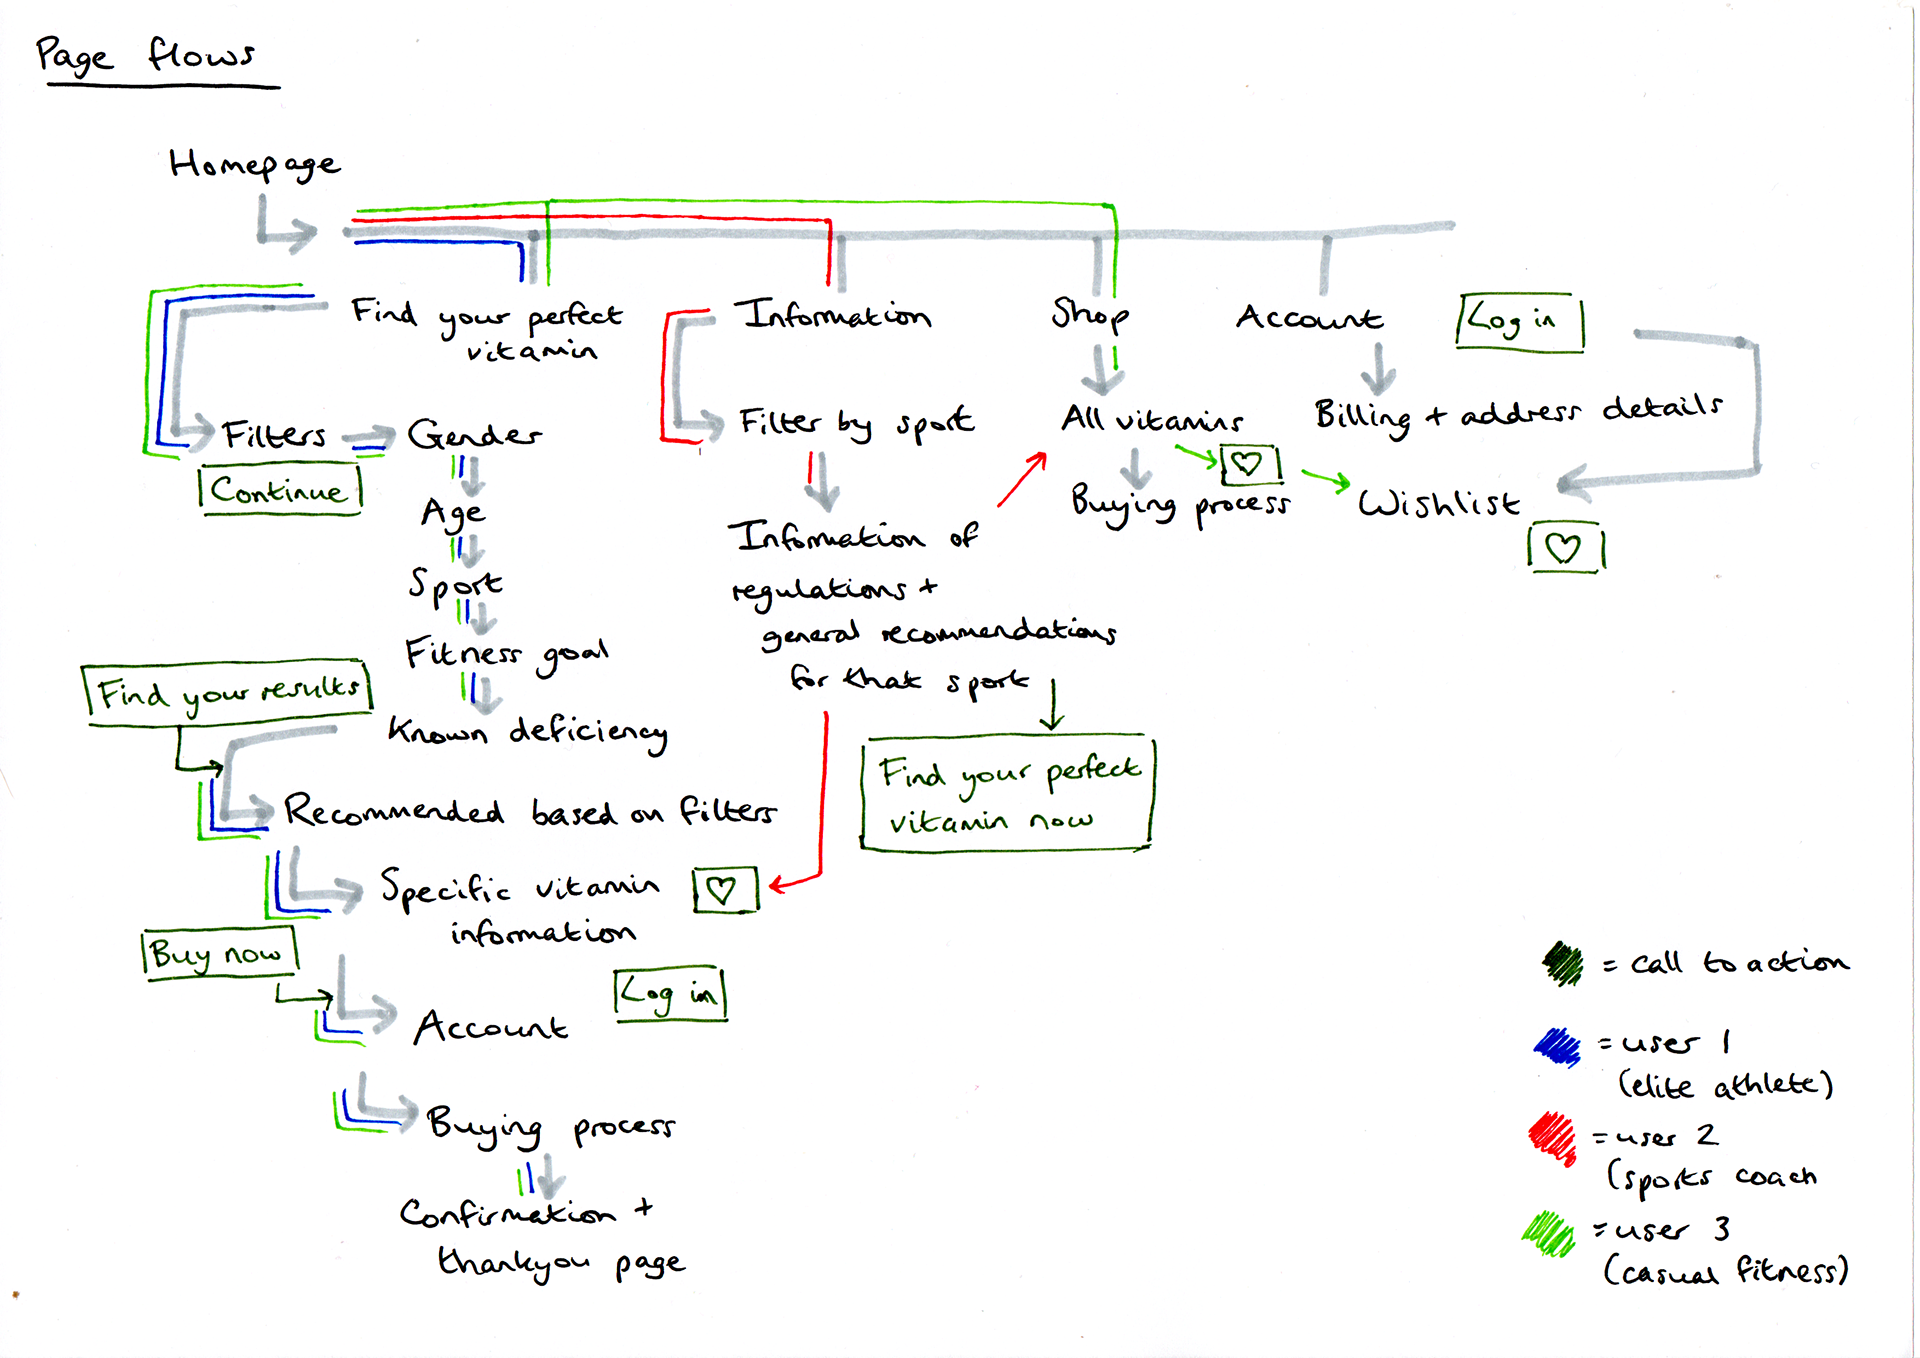 Page flows
Homepage
Find your perfect
vitamin
Information
Shop
Account
Log in
Filters
Continue
Gender
Age
Sport
Fitness goal
Known deficiency
Find your results
Recommended based on filters
Specific vitamin
information
Buy now
Log in
Account
Buying process
Confirmation +
thankyou page
Filter by sport
Information of
regulations +
general recommendations
for that sport
Find your perfect
vitamin now
All vitamins
Buying process
Billing + address details
Wishlist
= call to action
= user 1
(elite athlete)
= user 2
(sports coach
= user 3
(casual fitness)